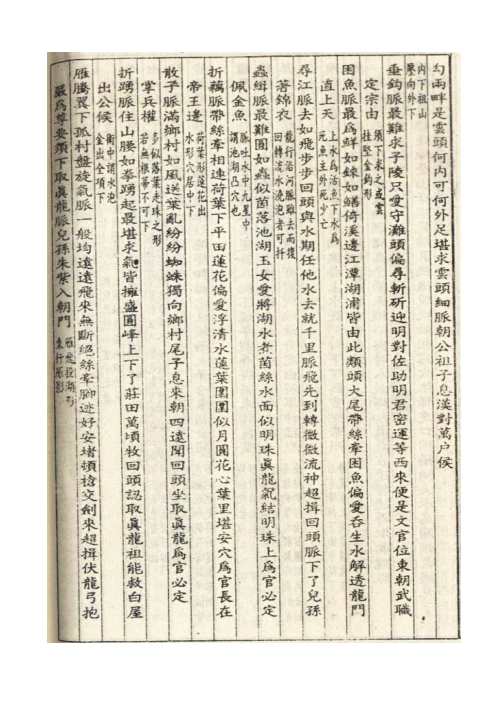 勾兩畔是雲頭何內可何外足堪求雲頭細脈朝公祖子息漢對萬户侯
內下祖山
壓向外下
垂鈎脈最難求子陵只愛守灘頭偏尋斬斫迎明對佐助明君密運等西來便是文官位東朝武職
定宗由
須下求之或雲
挂壁金鈎形
困魚脈最爲鮮如鍊如鱔倚溪邊江潭湖浦皆由此類頭大尾帶絲牽困魚偏愛吞生水解透龍門
直上天
上水爲活魚下水爲
死魚主外死少亡
尋江脈去如飛步步回頭與水期任他水去就千里脈飛先到轉微微流神超揖回頭脈下了兒孫
著錦衣
龍行沿河脈雖去而復
回轉逆水澆泡者可扦
蟲緝脈最難圖如蟲似茵落池湖玉女愛將湖水煮茵絲水面似明珠眞龍氣結明珠上爲官必定
佩金魚
脈吐水中九星中
謂池湖凸穴也
折藕脈帶絲牽相連荷葉下平田蓮花偏愛浮清水蓮葉團團似月圓花心葉里堪安穴爲官長在
帝王邊
荷葉形蓮花出
水形穴居中下
散子脈滿鄉村如風送葉亂紛紛蜘蛛獨向鄉村尾子息來朝四遠聞回頭坐取眞龍爲官必定
掌兵權
多似落葉走珠之形
若無根蒂不可下
折踴脈住山腰如拳踴起最堪求氣皆擁盛圓峰上下了莊田萬頃牧回頭認取眞龍祖能救白屋
出公侯
衝中謂水泡
金出全項下
雁騰翼下孤村盤旋氣脈一般均遠遠飛來無斷絕絲牽脚迹好安堵頓槍交劍來超揖伏龍弓抱
最爲尊要須下取眞龍脈兒孫朱紫入朝門